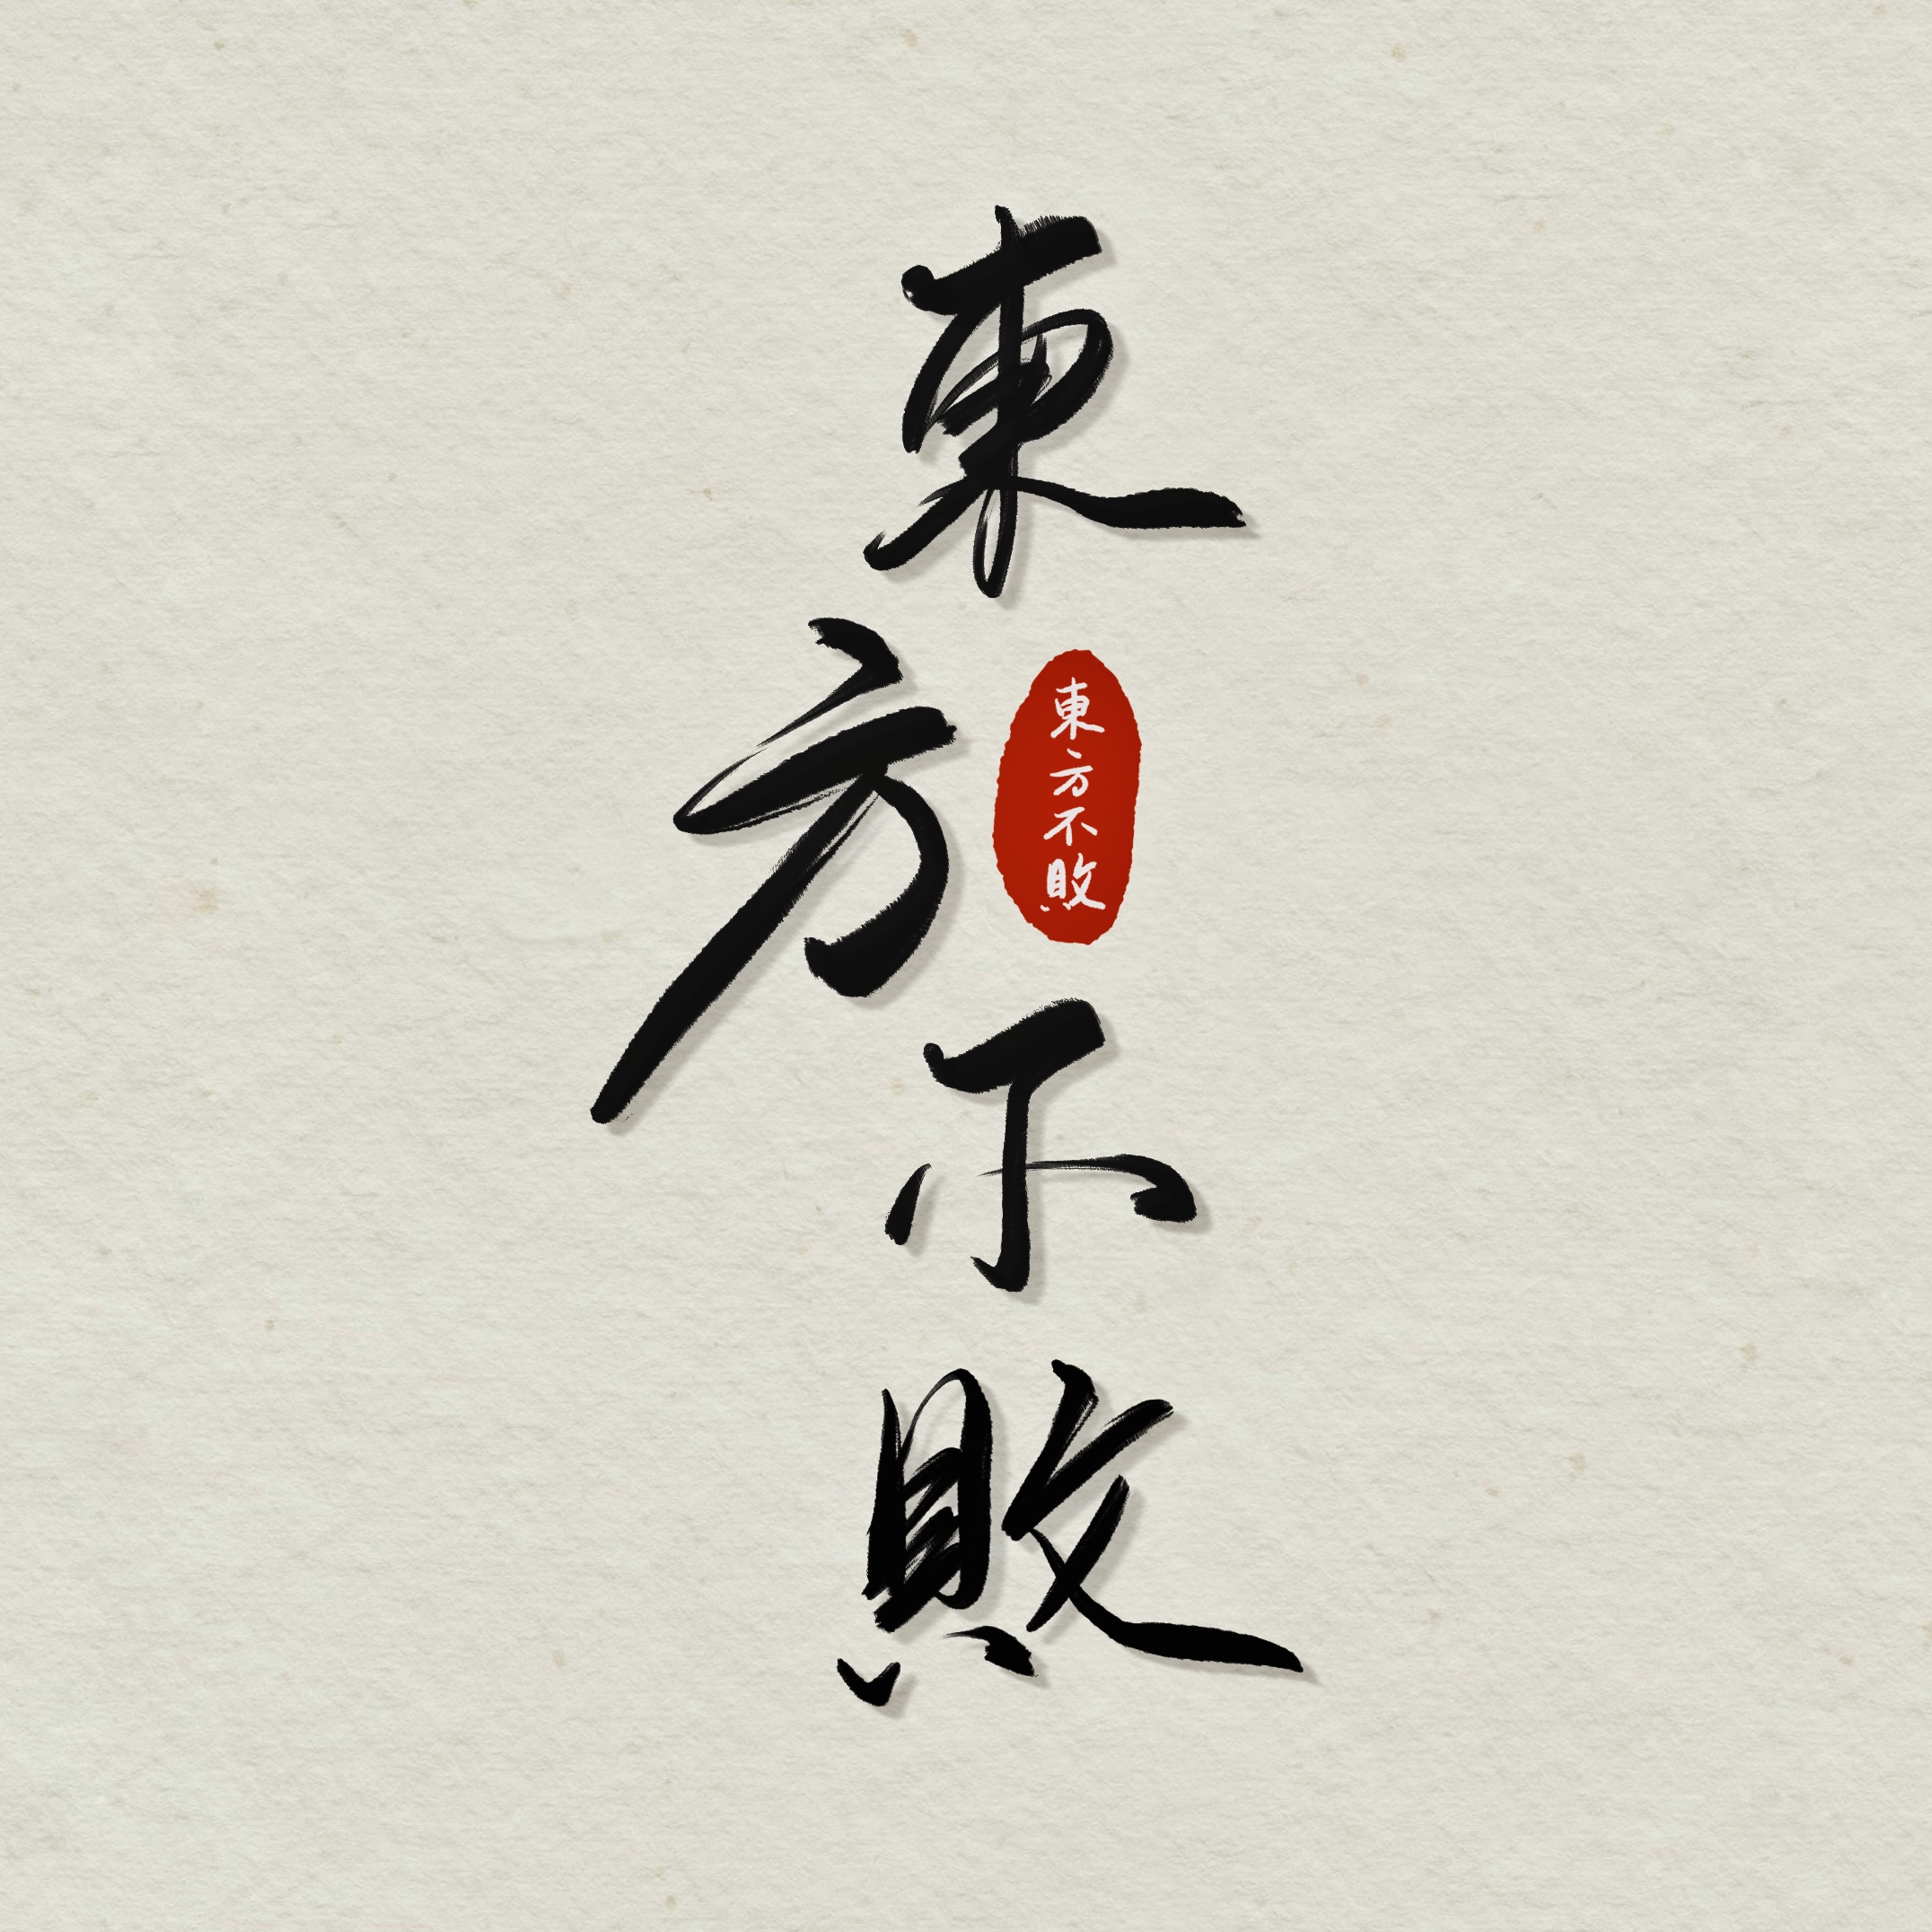 東方不敗
東方不敗